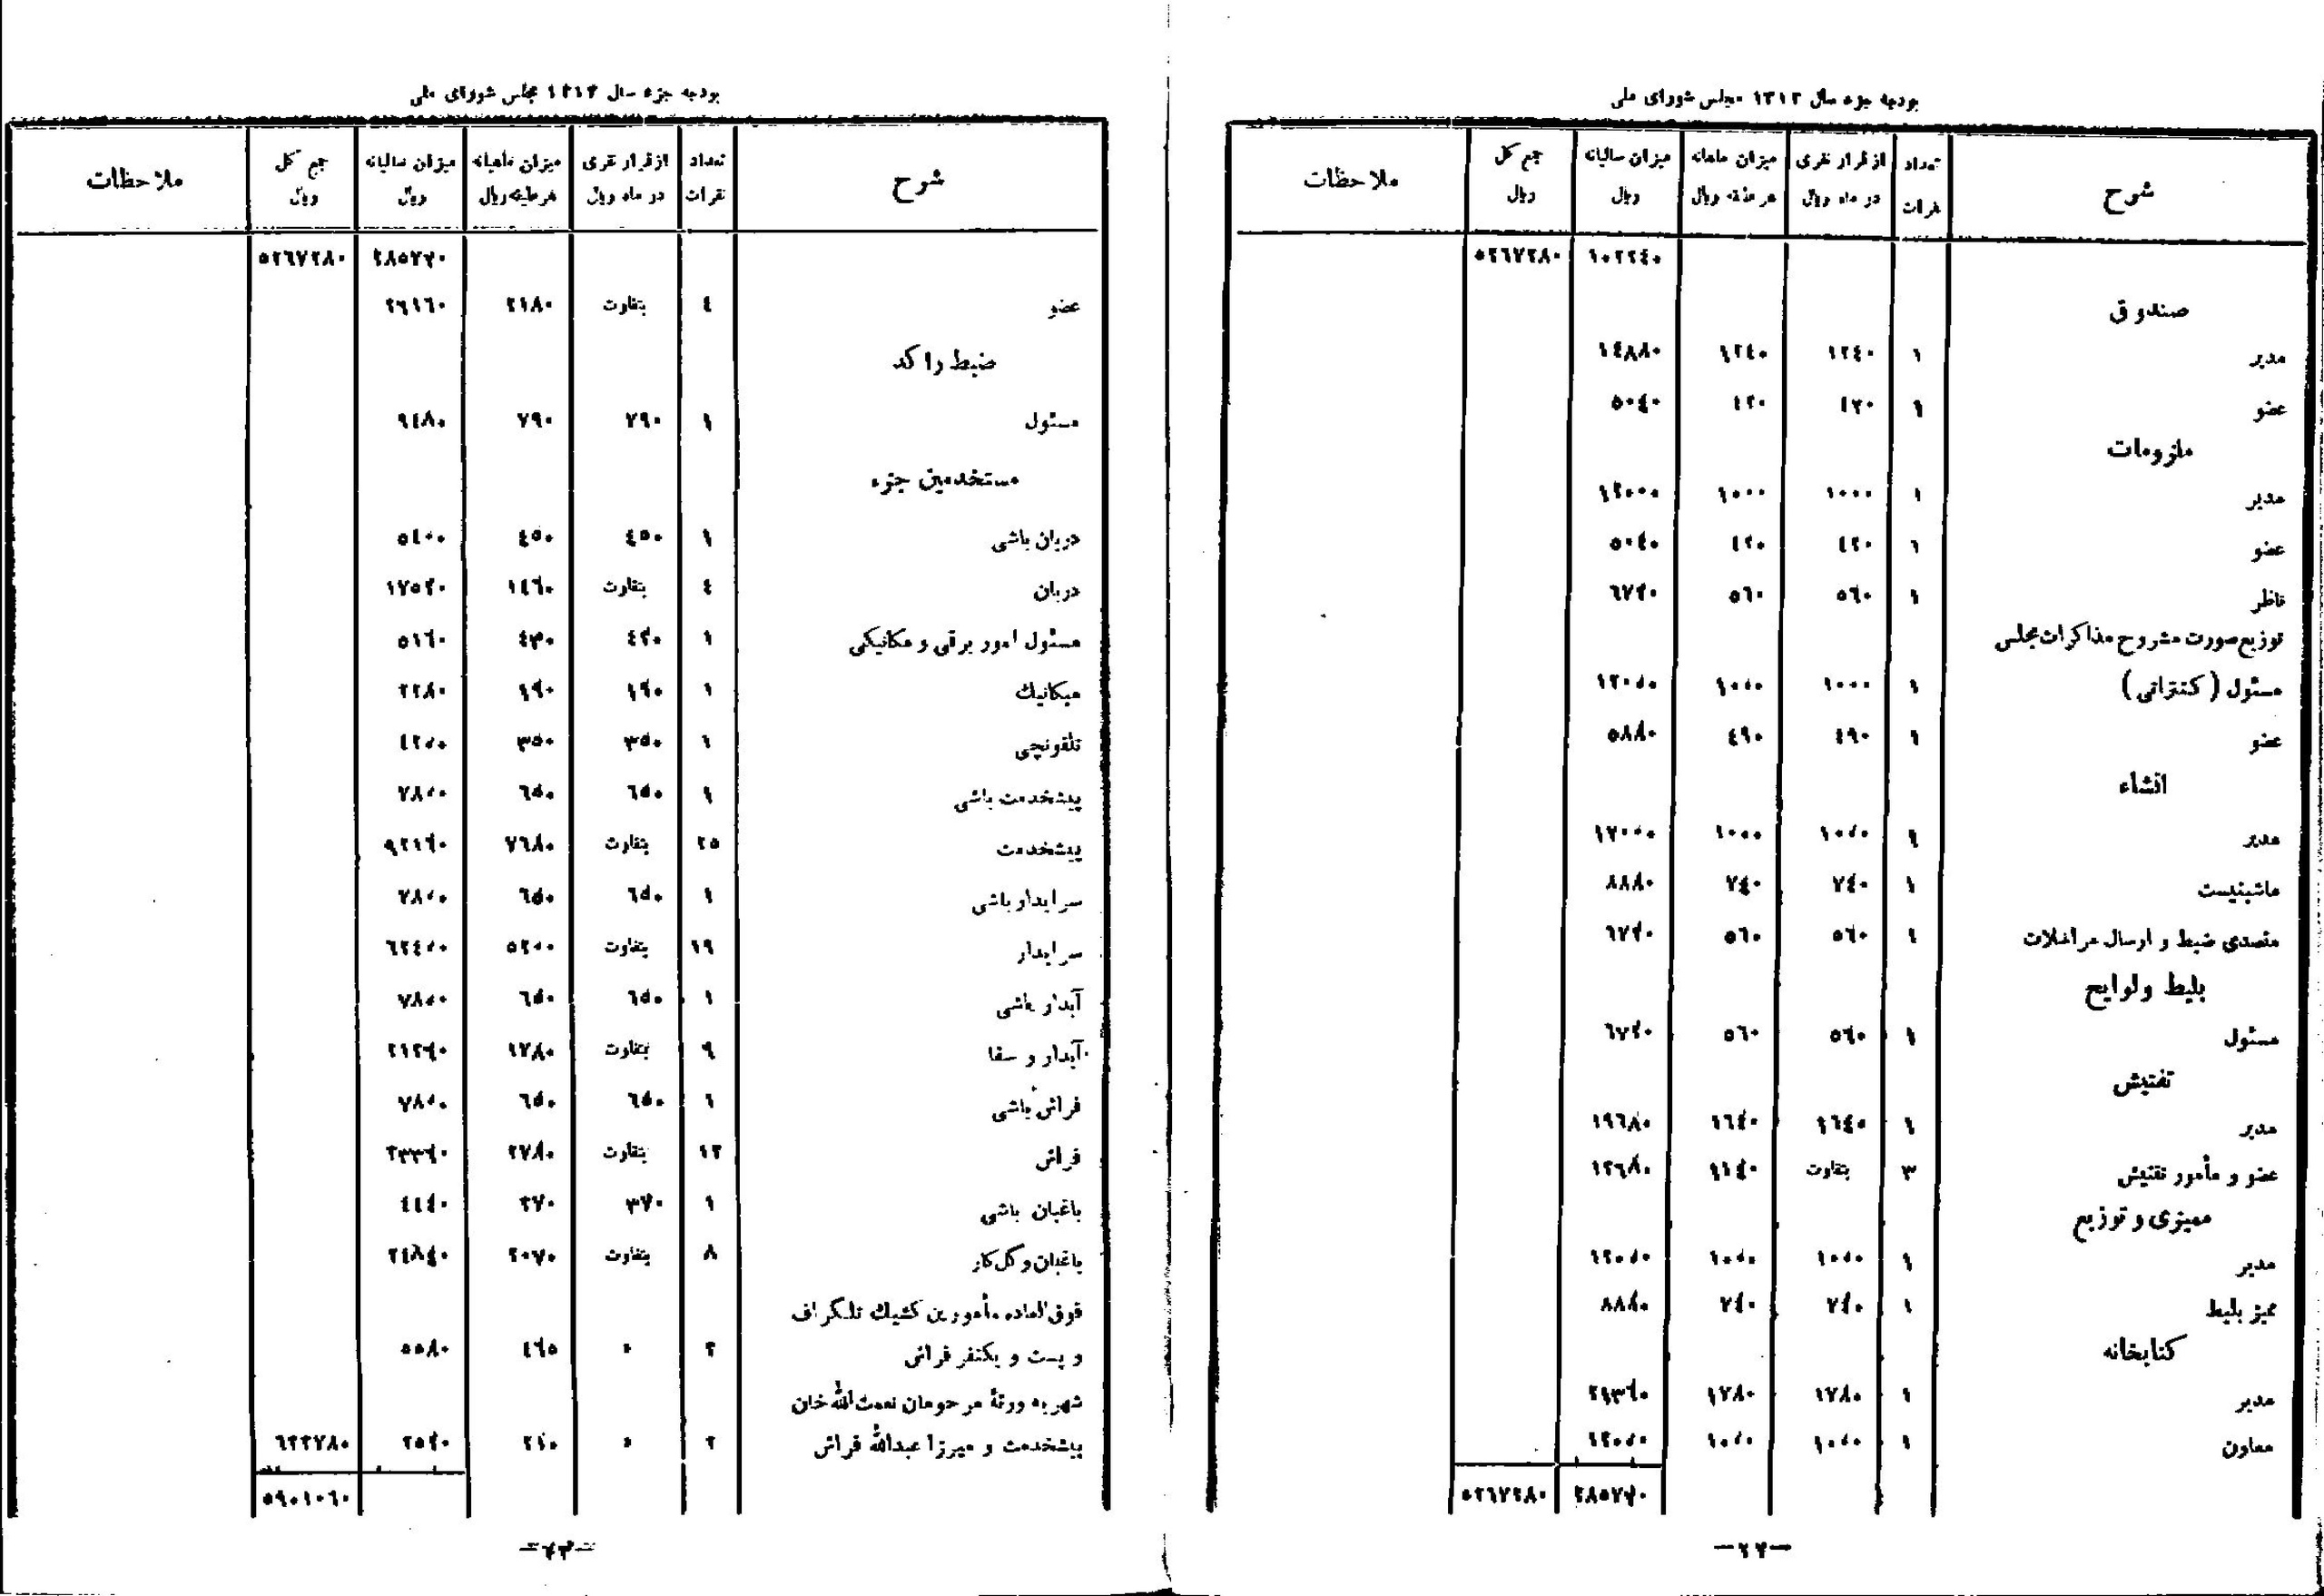 بودجه جزء سال ۱۳۱۳ مجلس شورای ملی
شرح | تعداد نفرات | از قرار نفری در ماه ریال | میزان ماهانه هر طبقه ریال | میزان سالیانه ریال | جمع کل ریال | ملاحظات
۱۰۲۲٤۰ ۵۲٦۷۲۸۰
صندوق
مدیر ۱ ۱۲٤۰ ۱۲٤۰ ۱٤۸۸۰
عضو ۱ ٤۲۰ ٤۲۰ ۵۰٤۰
ملزومات
مدیر ۱ ۱۰۰۰ ۱۰۰۰ ۱۲۰۰۰
عضو ۱ ٤۲۰ ٤۲۰ ۵۰٤۰
ناظر ۱ ۵٦۰ ۵٦۰ ٦۷۲۰
توزیع صورت مشروح مذاکرات مجلس
مسئول (کنتراتی) ۱ ۱۰۰۰ ۱۰۰۰ ۱۲۰۰۰
عضو ۱ ٤۹۰ ٤۹۰ ۵۸۸۰
انشاء
مدیر ۱ ۱۰۰۰ ۱۰۰۰ ۱۲۰۰۰
ماشینیست ۱ ۷٤۰ ۷٤۰ ۸۸۸۰
متصدی ضبط و ارسال مراسلات ۱ ۵٦۰ ۵٦۰ ٦۷۲۰
بلیط ولوایح
مسئول ۱ ۵٦۰ ۵٦۰ ٦۷۲۰
تفتیش
مدیر ۱ ۱٦٤۰ ۱٦٤۰ ۱۹٦۸۰
عضو و مأمور تفتیش ۳ بتفاوت ۱۱٤۰ ۱۳٦۸۰
ممیزی و توزیع
مدیر ۱ ۱۰۰۰ ۱۰۰۰ ۱۲۰۰۰
ممیز بلیط ۱ ۷٤۰ ۷٤۰ ۸۸۸۰
کتابخانه
مدیر ۱ ۱۷۸۰ ۱۷۸۰ ۲۱۳٦۰
معاون ۱ ۱۰۰۰ ۱۰۰۰ ۱۲۰۰۰
۲۸۵۷۲۰ ۵۲٦۷۲۸۰
—۲۲—
بودجه جزء سال ۱۳۱۳ مجلس شورای ملی
شرح | تعداد نفرات | از قرار نفری در ماه ریال | میزان ماهیانه هر طبقه ریال | میزان سالیانه ریال | جمع کل ریال | ملاحظات
۲۸۵۷۲۰ ۵۲٦۷۲۸۰
عضو ٤ بتفاوت ۲۱۸۰ ۲٦۱٦۰
ضبط راکد
مسئول ۱ ۷۹۰ ۷۹۰ ۹٤۸۰
مستخدمین جزء
دربان باشی ۱ ٤۵۰ ٤۵۰ ۵٤۰۰
دربان ٤ بتفاوت ۱٤٦۰ ۱۷۵۲۰
مسئول امور برقی و مکانیکی ۱ ٤۳۰ ٤۳۰ ۵۱٦۰
میکانیك ۱ ۱۹۰ ۱۹۰ ۲۲۸۰
تلفونچی ۱ ۳۵۰ ۳۵۰ ٤۲۰۰
پیشخدمت باشی ۱ ٦۵۰ ٦۵۰ ۷۸۰۰
پیشخدمت ۲۵ بتفاوت ۷٦۸۰ ۹۲۱٦۰
سرایدار باشی ۱ ٦۵۰ ٦۵۰ ۷۸۰۰
سرایدار ۱۹ بتفاوت ۵۲۰۰ ٦۲٤۰۰
آبدار باشی ۱ ٦۵۰ ٦۵۰ ۷۸۰۰
آبدار و سقا ۹ بتفاوت ۱۷۸۰ ۲۱۳٦۰
فراش باشی ۱ ٦۵۰ ٦۵۰ ۷۸۰۰
فراش ۱۲ بتفاوت ۲۷۸۰ ۳۳۳٦۰
باغبان باشی ۱ ۳۷۰ ۳۷۰ ٤٤٤۰
باغبان و گل کار ۸ بتفاوت ۲۰۷۰ ۲٤۸٤۰
فوق العاده مأمورین کشیك تلگراف
و پست و یکنفر فراش ۳ » ٤٦۵ ۵۵۸۰
شهریه ورثهٔ مرحومان نعمت الله خان
پیشخدمت و میرزا عبدالله فراش ۲ » ۲۱۰ ۲۵۲۰ ٦۳۳۷۸۰
۵۹۰۱۰٦۰
—۲۳—